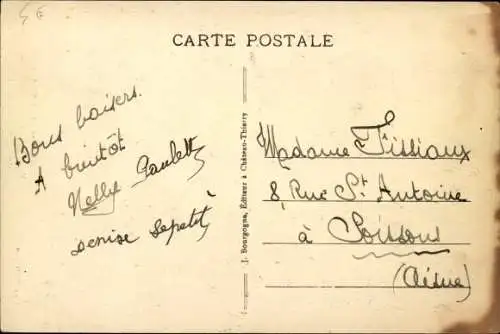 5 E
CARTE POSTALE
Bons baisers.
A bientôt
Nelly Paulette
Denise Lepetit
J. Bourgogne, Éditeur à Château-Thierry
Madame Tissiaux
8, Rue St. Antoine
à Soissons
(Aisne)